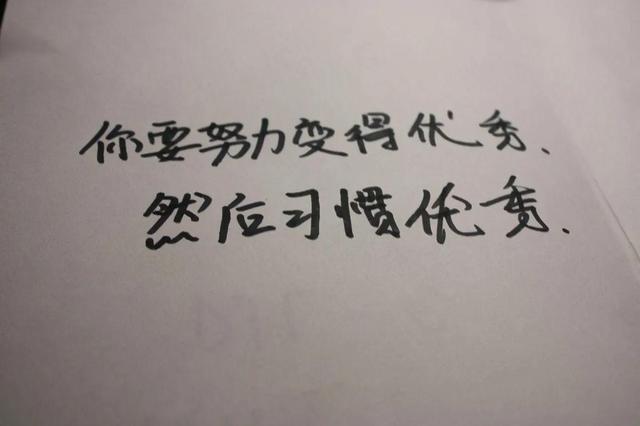 你要努力变得优秀、
然后习惯优秀.